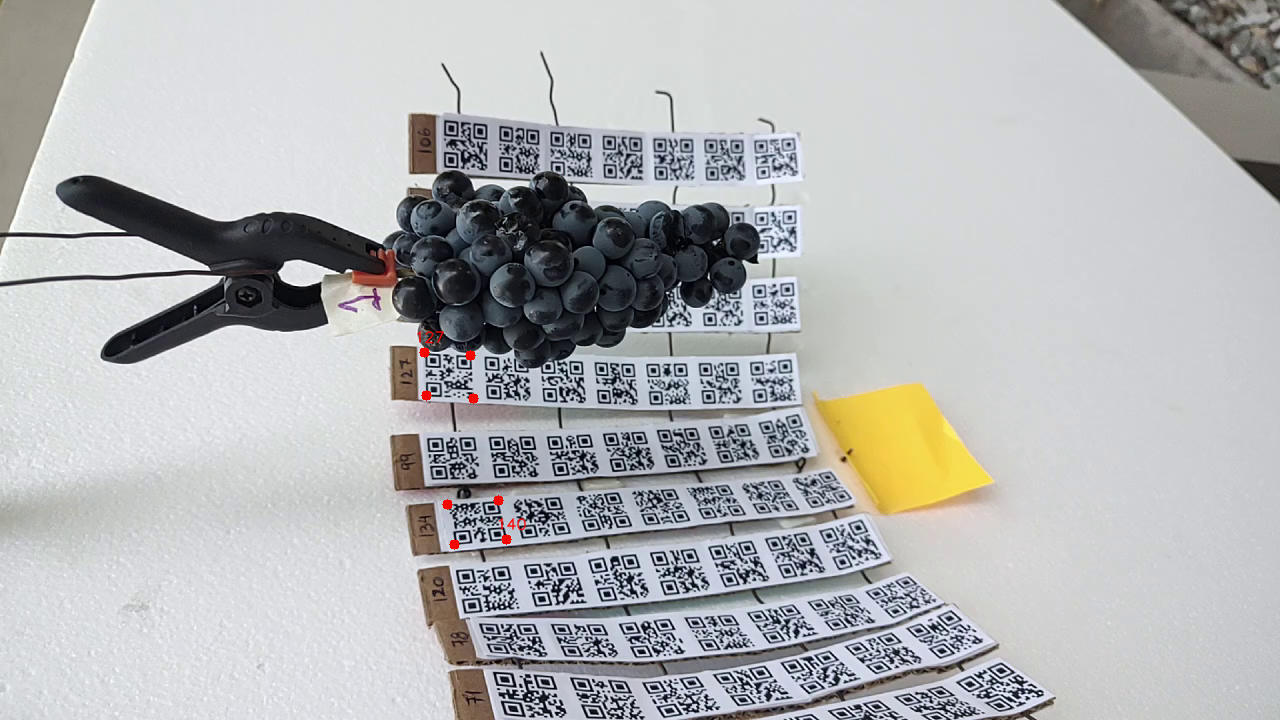 106
1
127
127
99
134
140
120
78
71